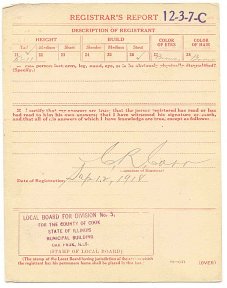 REGISTRAR'S REPORT 12-3-7-C
DESCRIPTION OF REGISTRANT
HEIGHT BUILD COLOR OF EYES COLOR OF HAIR
Tall Medium Short Slender Medium Stout
Has person lost arm, leg, hand, eye, or is he obviously physically disqualified?
(Specify.)
I certify that my answers are true; that the person registered has read or has
had read to him his own answers; that I have witnessed his signature or mark,
and that all of his answers of which I have knowledge are true, except as follows:
(Signature of Registrar)
Date of Registration Sept 12, 1918
LOCAL BOARD FOR DIVISION No. 3,
FOR THE COUNTY OF COOK
STATE OF ILLINOIS
MUNICIPAL BUILDING
OAK PARK, ILL.
(STAMP OF LOCAL BOARD)
(The stamp of the Local Board having jurisdiction of the area in which the
registrant has his permanent home shall be placed in this box.)
(OVER)